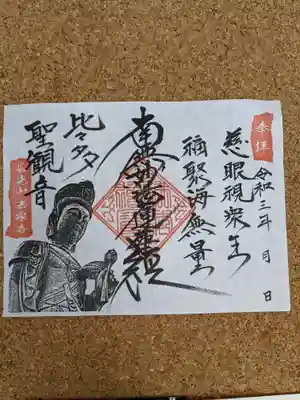 奉拝
令和三年 月 日
慈眼視衆生
福聚海無量
南無妙法蓮華経
比々多
聖観音